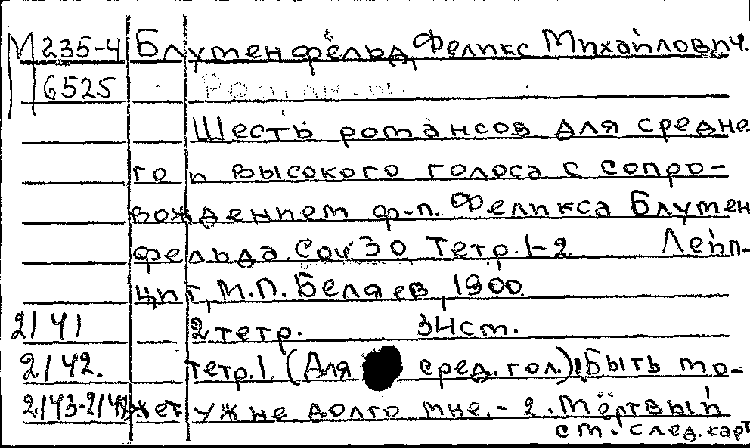 М 235-4 Блуменфельд, Феликс Михайлович.
6525 Романсы
Шесть романсов для средне
го и высокого голоса с сопро-
вождением ф-п. Феликса Блумен
фельда. Соч 30 Тетр. 1-2. Лейп-
циг, М.П. Беляев, 1900.
2141 2 тетр. 34 см.
2142. Тетр. 1. (Для сред. гол.) 1. Быть мо-
2143-2148 жет уж не долго мне. - 2. Мёртвый
см. след. карт